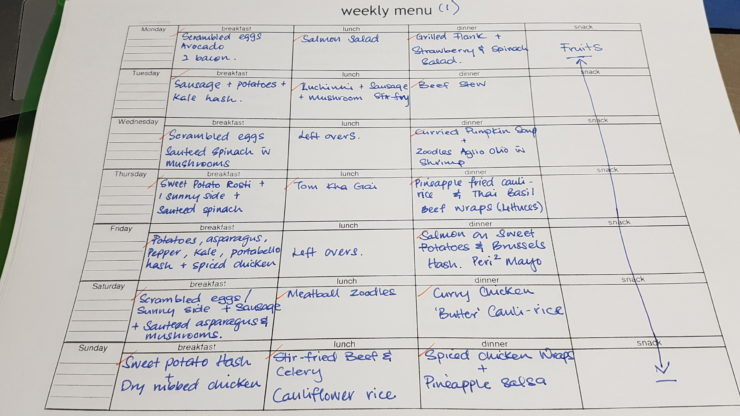 weekly menu (1)
Monday
breakfast
Scrambled eggs
Avocado
2 bacon.
lunch
Salmon Salad
dinner
Grilled Flank +
Strawberry & Spinach
Salad.
snack
Fruits
Tuesday
breakfast
Sausage + potatoes +
Kale hash.
lunch
Zuchinni + Sausage
+ mushroom Stir-fry
dinner
Beef Stew
snack
Wednesday
breakfast
Scrambled eggs
Sauteed Spinach w
mushrooms
lunch
Left overs.
dinner
Curried Pumpkin Soup
+
Zoodles Aglio Olio w
Shrimp
snack
Thursday
breakfast
Sweet Potato Rosti +
1 Sunny side +
Sauteed spinach
lunch
Tom Kha Gai
dinner
Pineapple fried cauli-
rice & Thai Basil
Beef Wraps (Lettuces)
snack
Friday
breakfast
Potatoes, asparagus,
Pepper, Kale, portabello
hash + spiced chicken
lunch
Left overs.
dinner
Salmon on Sweet
Potatoes & Brussels
Hash. Peri² Mayo
snack
Saturday
breakfast
Scrambled eggs/
Sunny side + Sausage
+ Sauteed asparagus &
mushrooms.
lunch
Meatball Zoodles
dinner
Curry Chicken
'Butter' Cauli-rice
snack
Sunday
breakfast
Sweet potato Hash
+
Dry rubbed chicken
lunch
Stir-fried Beef &
Celery
Cauliflower rice
dinner
Spiced chicken Wraps
+
Pineapple Salsa
snack